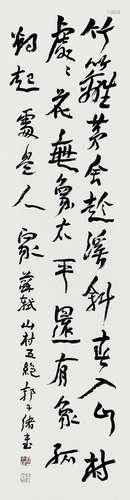 竹籬茅舍趁溪斜春入山村
處々花無象太平還有象孤
烟起處是人家 蘇軾山村五絕 郭子緒書